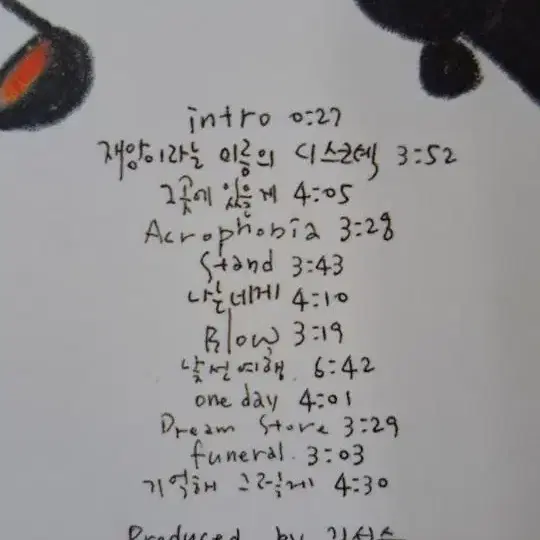 intro 0:27
재앙이라는 이름의 디스코텍 3:52
그곳에 있을게 4:05
Acrophobia 3:28
Stand 3:43
나는 네게 4:10
Blow 3:19
낯선여행. 6:42
one day 4:01
Dream Store 3:29
funeral. 3:03
기억해 그리울게 4:30
Produced by